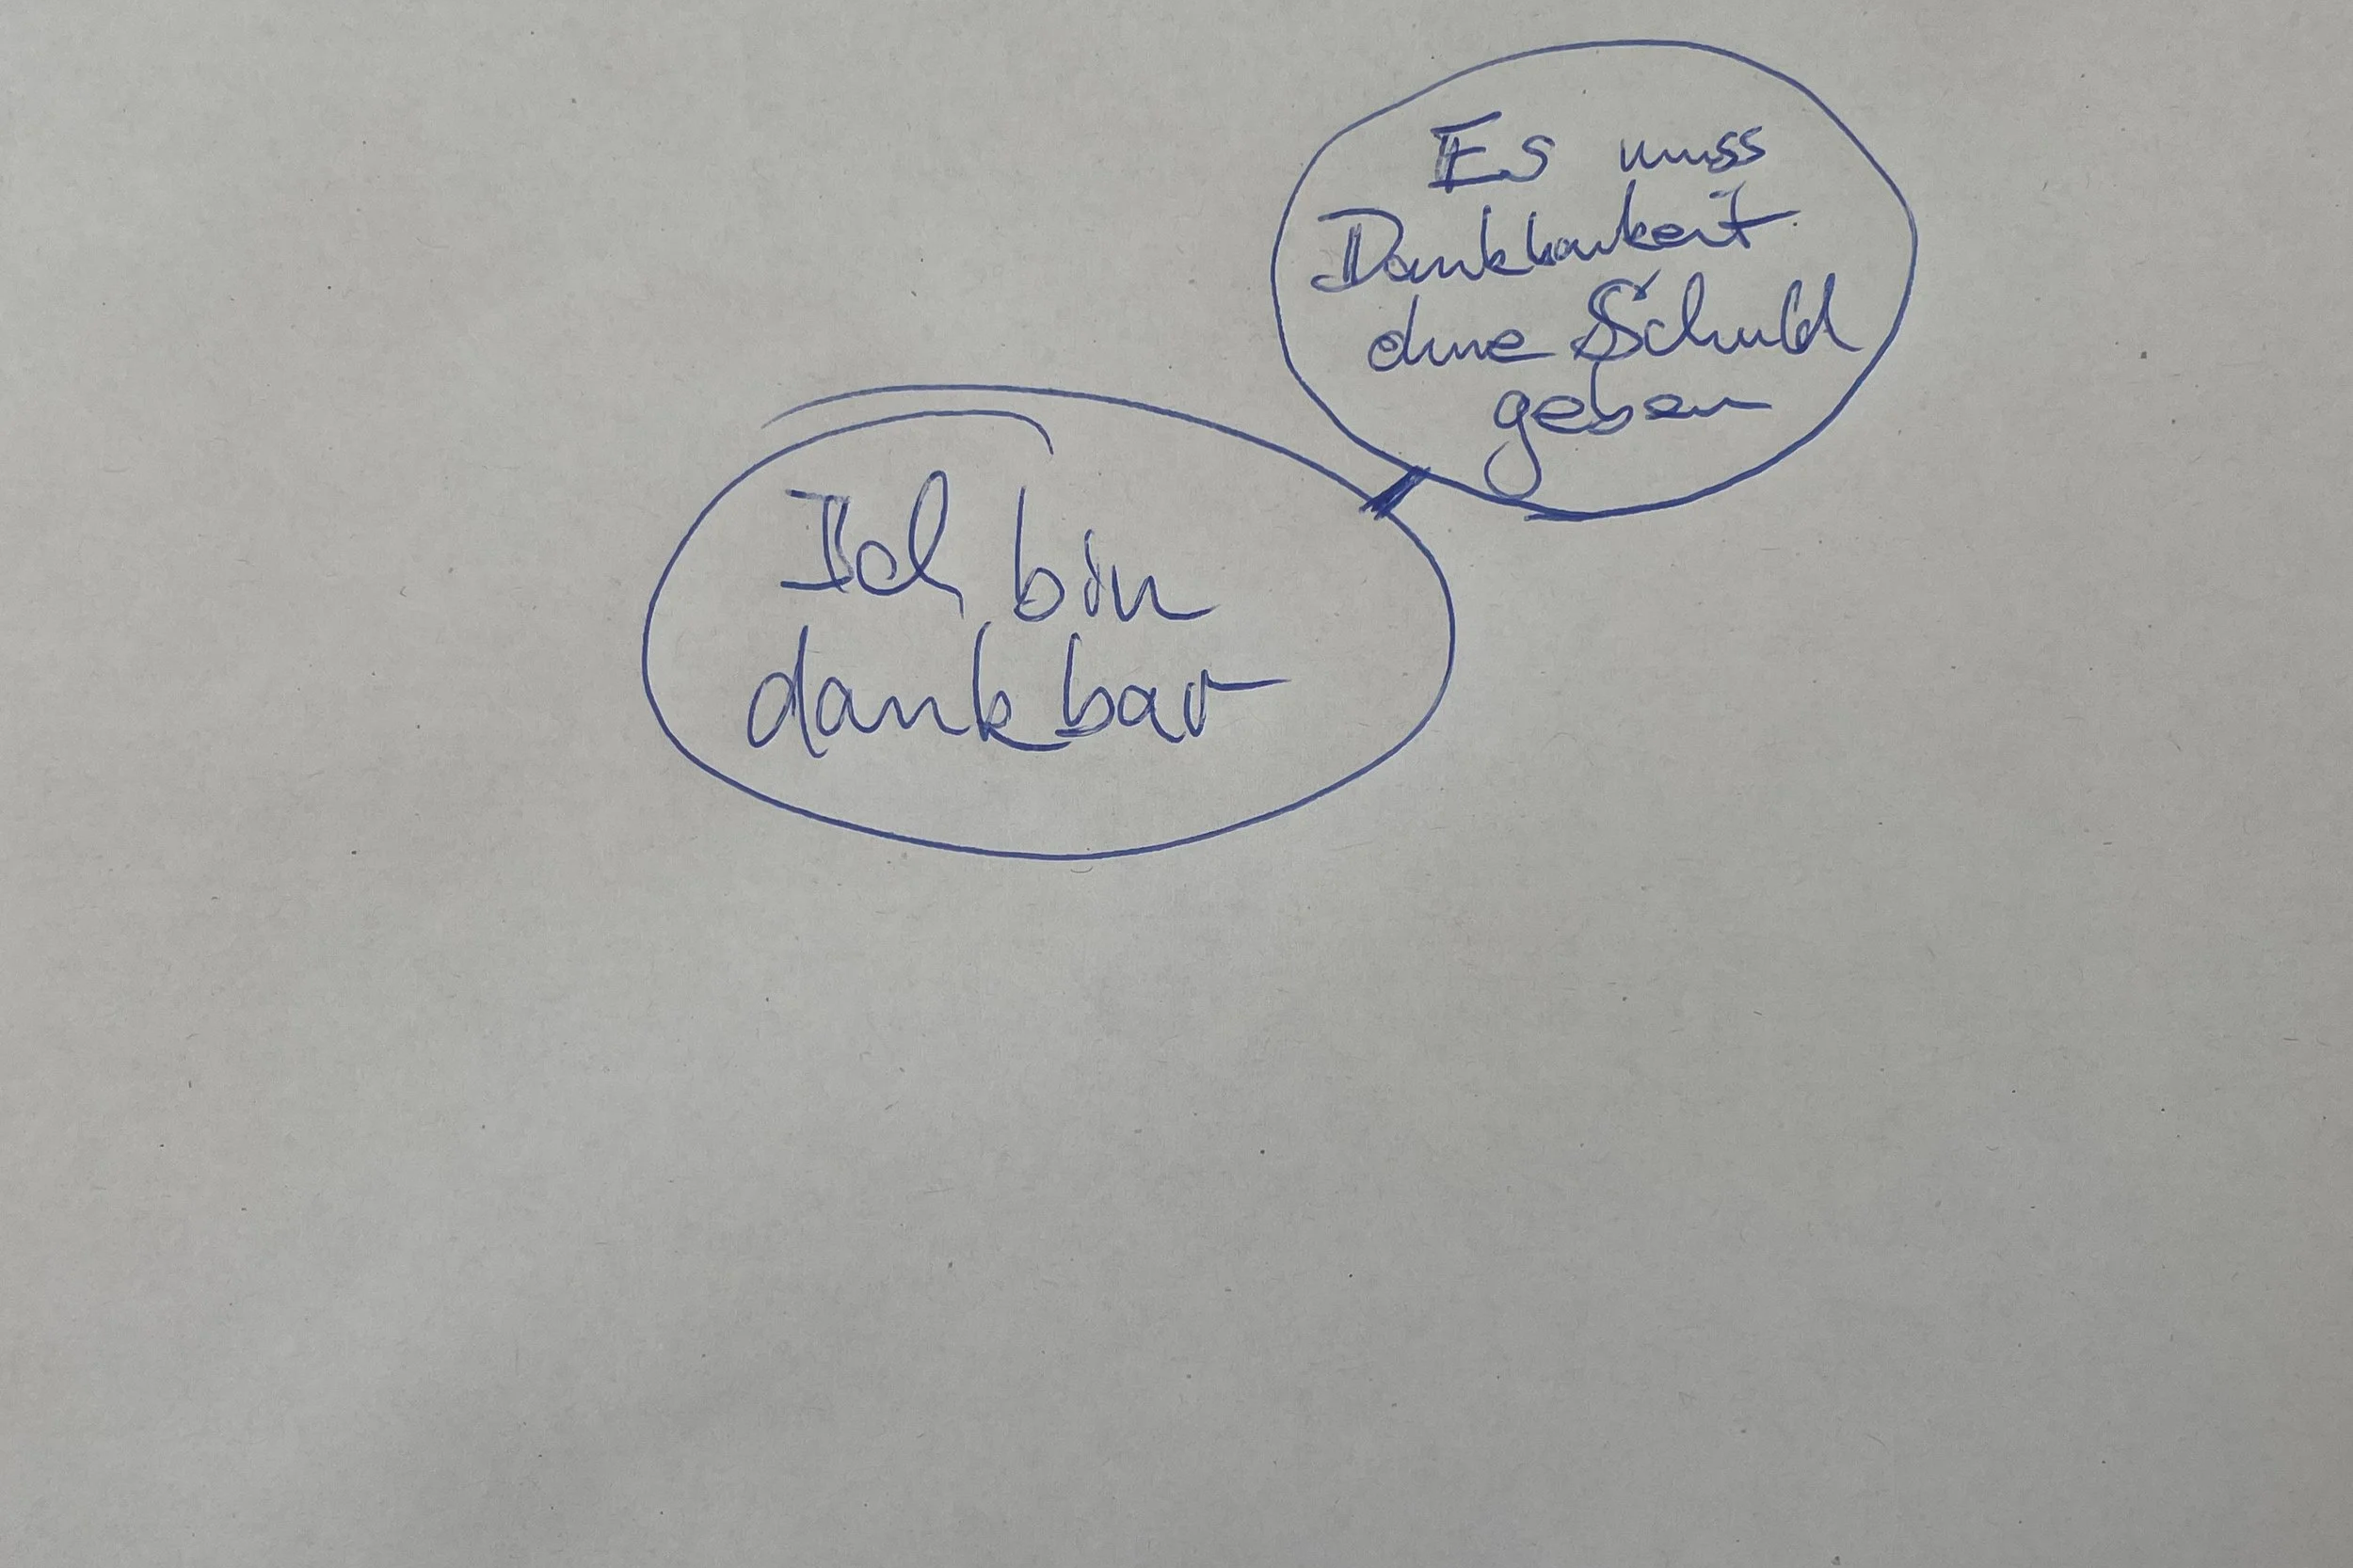 Es muss
Dankbarkeit
ohne Schuld
geben
Ich bin
dankbar